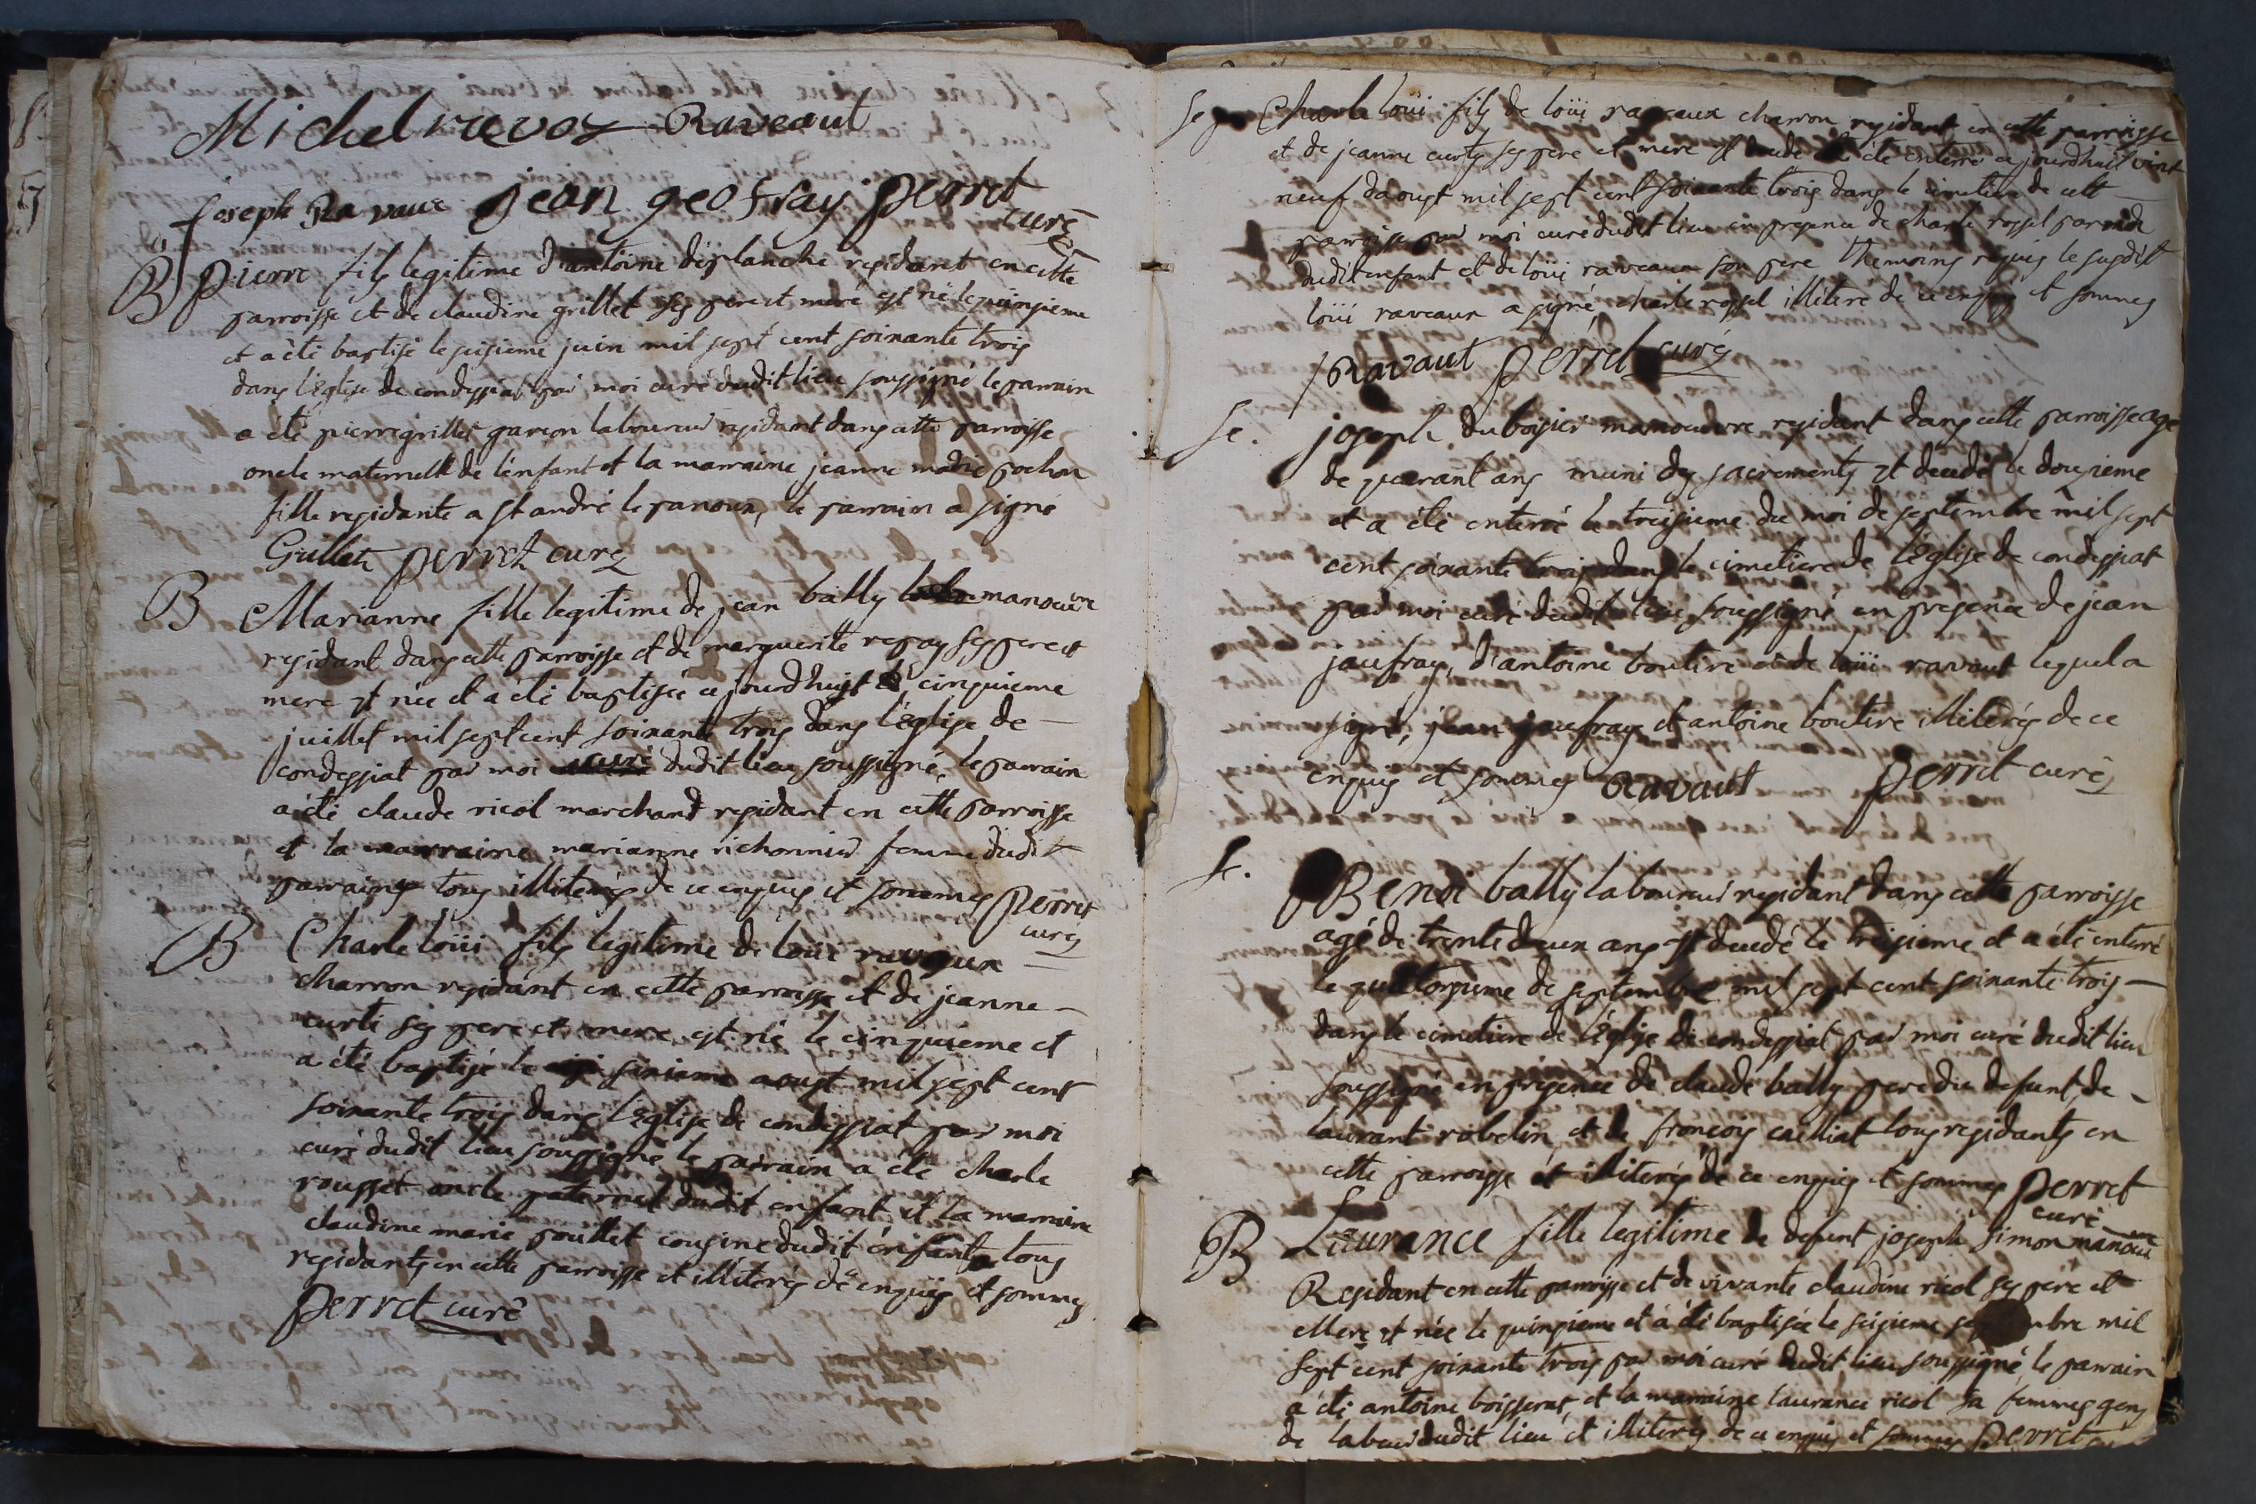 Michel revoz Raveaut
joseph Ra vaux jean geofray perret
curé
B pierre fils legitime d'antoine desplanche residant en cette
parroisse et de claudine grillet ses pere et mere est né le quinsieme
et a été baptisé le seisieme juin mil sept cent soixante trois
dans l'église de condessiat par moi curé dudit lieu soussigné le parrain
a été pierre grillet garcon laboureur residant dans cette parroisse
oncle maternell de l'enfant et la marraine jeanne marie pochon
fille residante a st andré le panoux, le parrain a signé
Grillet perret curé
B Marianne fille legitime de jean bally manouvre
residant dans cette parroisse et de marguerite repoy ses pere et
mere st née et a été baptisée ce jourdhuist cinquieme
juillet mil sept cent soixante trois dans l'église de
condessiat par moi curé dudit lieu soussigné, le parrain
a été claude ricol marchand residant en cette parroisse
et la marraine marianne richonnier femme dudit
parrain tous illiterés de ce enquis et sommes perret
curé
B Charle loüi fils legitime de loüi raveaux
charron residant en cette parroisse et de jeanne
curti ses pere et mere est né le cinquieme et
a été baptisé le sixieme aoust mil sept cent
soixante trois dans l'église de condessiat par moi
curé dudit lieu soussigné le parrain a été charle
rousset oncle paternel dudit enfant et la marraine
claudine marie poullet cousine dudit enfant tous
residants en cette parroisse et illiterés de enquis et sommes
perret curé
Se Charle loüi fils de loüi raveaux charron residant en cette parroisse
et de jeanne curty ses pere et mere st été enterré ce jourdhuis vint
neuf daoust mil sept cent soixante trois dans le cimetiere de cett
parroisse par moi curé dudit lieu en presence de charle rossel parrain
dudit enfant et de loüi raveaux son pere themoins requis le susdit
loüi raveaux a signé charle rossel illiteré de ce enquis et sommes
Ravaut perret curé
Se. joseph duboisier manouvre residant dans cette parroisse age
de quarant ans muni des sacrements st decedé le dousieme
et a été enterré le treisieme du moi de septembre mil sept
cent soixante trois dans le cimetiere de l'église de condessiat
par moi curé dudit lieu soussigné en presence de jean
jaufray, d'antoine boutire et de loüi ravaut lequel a
signé, jean jaufray et antoine boutire illiterés de ce
enquis et sommes Ravaut perret curé
Se. Benoi bally laboureur residant dans cette parroisse
agé de trente deux ans st decedé le treisieme et a été enterré
le quattorsieme de septembre mil sept cent soixante trois
dans le cimetiere de l'église de condessiat par moi curé dudit lieu
soussigné en presence de claude bally pere du defunt, de
laurant robelin, et de francoys cailliat tous residants en
cette parroisse et illiterés de ce enquis et sommes perret
curé
B Laurance fille legitime de defunt joseph simon manouvre
Residant en cette parroisse et de vivante claudine ricol ses pere et
Mere st née le quinsieme et a été baptisée le seisieme septembre mil
sept cent soixante trois par moi curé dudit lieu soussigné le parrain
a été antoine boisserat, et la marraine laurance ricol sa femmes gens
de labeur dudit lieu et illiterés de ce enquis et sommes perret